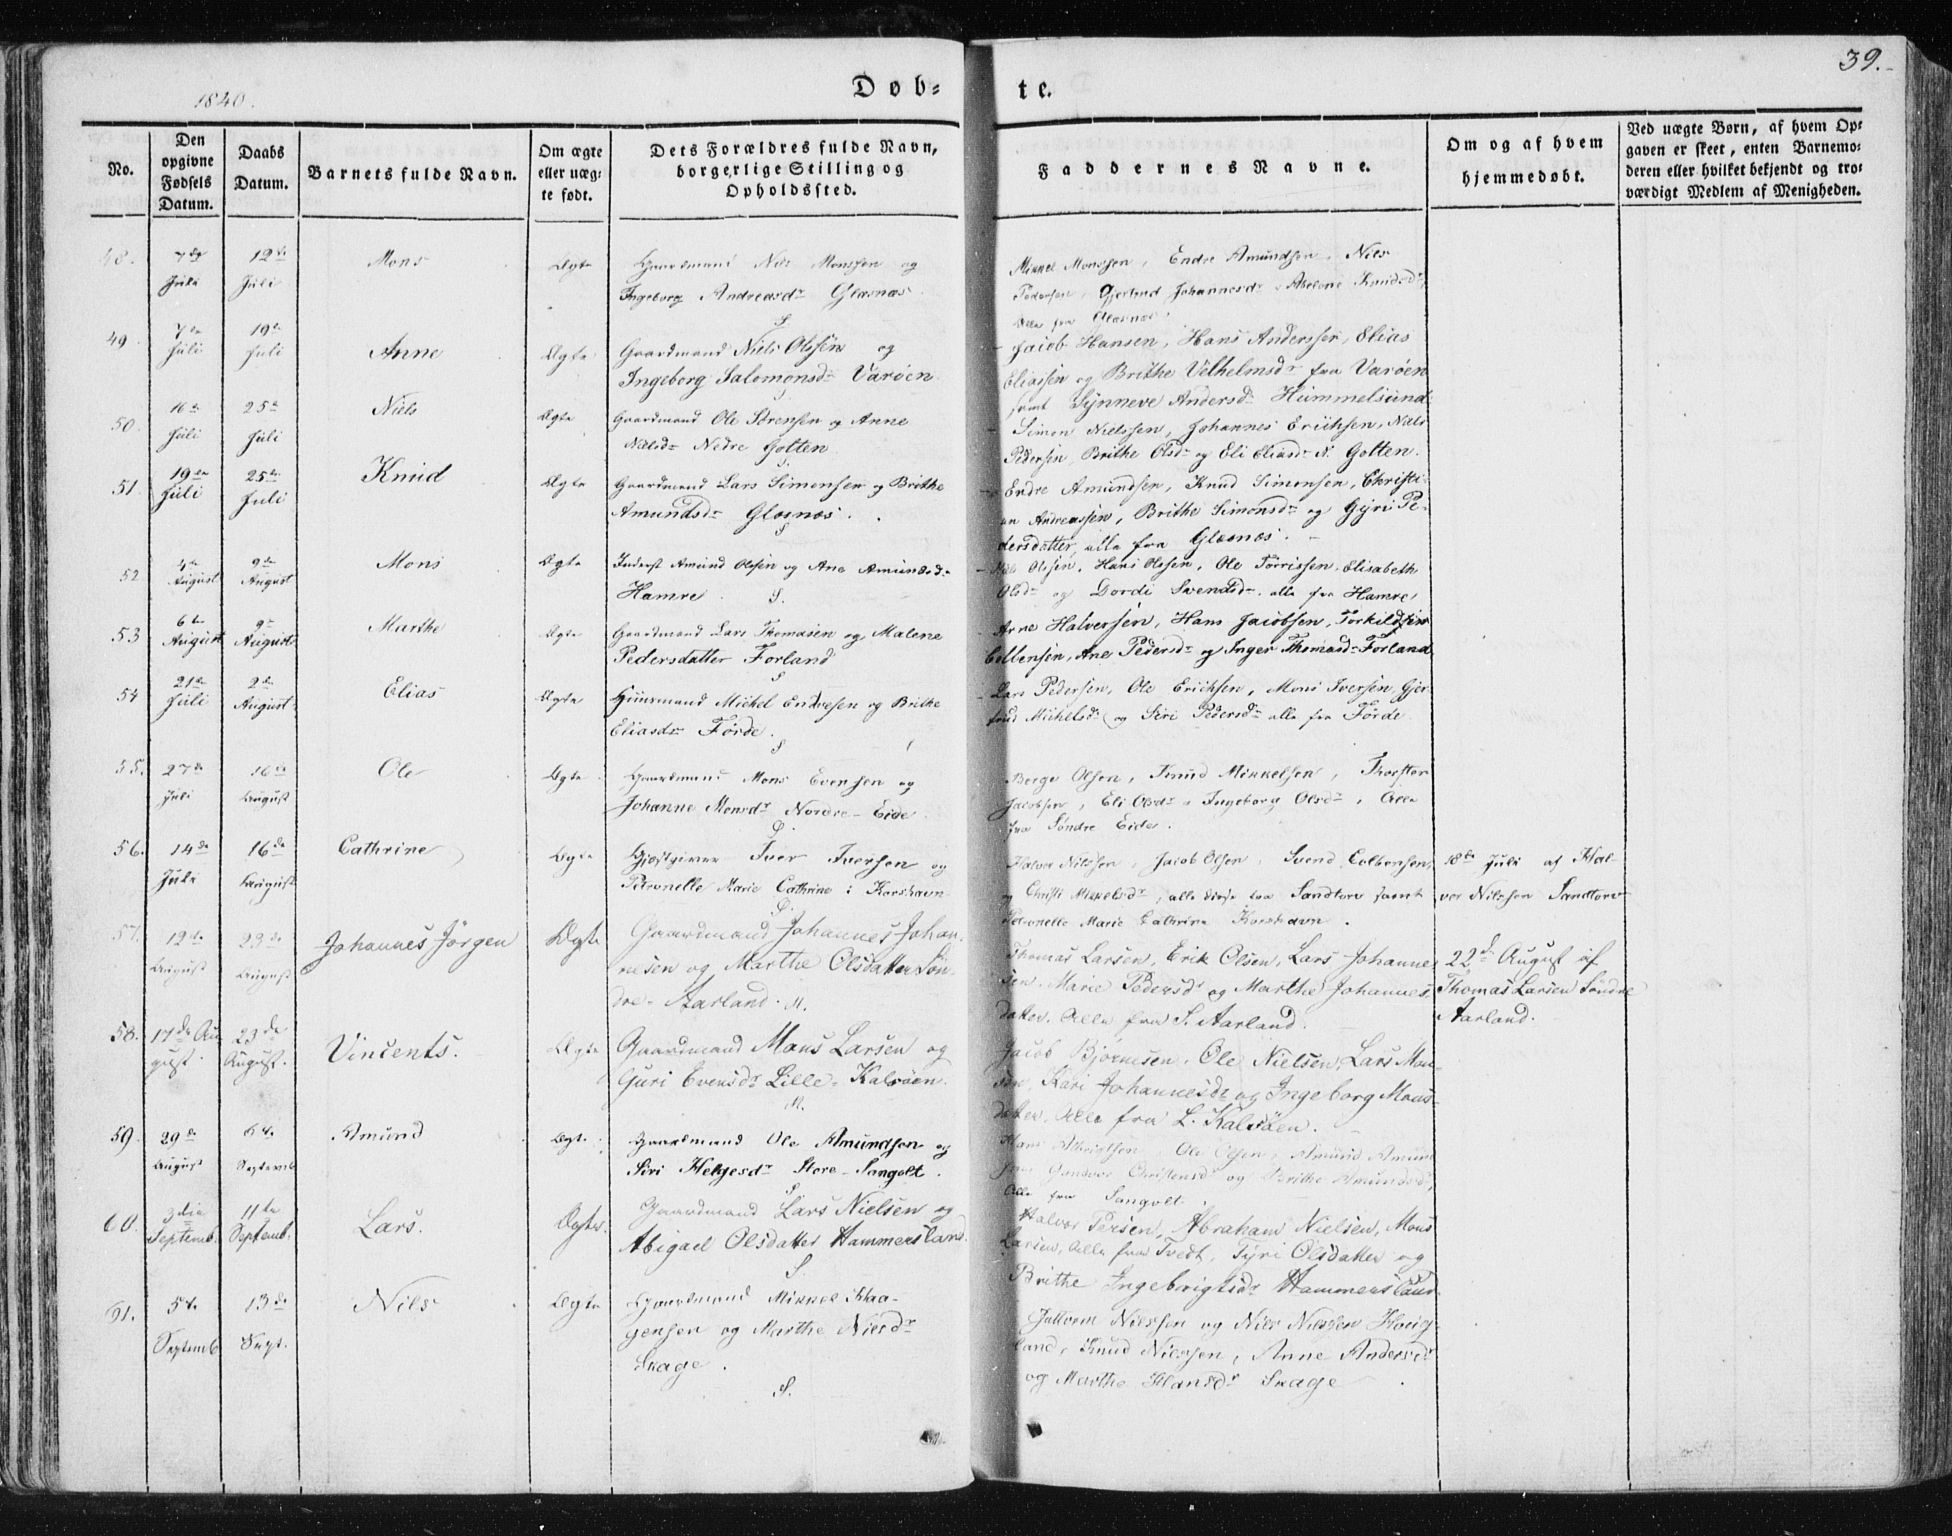 39.
1840.
Døb=
te.
No.
Den opgivne Fødsels Datum.
Daabs Datum.
Barnets fulde Navn.
Om ægte eller uæg= te født.
Dets Forældres fulde Navn, borgerlige Stilling og Opholdssted.
Faddernes Navne.
Om og af hvem hjemmedøbt.
Ved uægte Børn, af hvem Op= gaven er skeet, enten Barnemo= deren eller hvilket bekjendt og tro= værdigt Medlem af Menigheden.
48. 7de Juli 12te Juli Mons Ægte
Gaardmand Nils Monssen og
Ingeborg Andreasdr Glæsnæs
S
Mikkel Monssen, Endre Amundsen, Nils
Pedersen, Gjertrud Johannesdr, Abelone Knudsdr,
Alle fra Glæsnæs.
49 7de Juli 19de Juli Anne Ægte
Gaardmand Niels Olssen og
Ingeborg Salomonsdr Varøen
Jacob Hansen, Hans Anderssen, Elias
Eliassen og Brithe Velhelmsdr fra Varøen
samt Synneve Andersdr Hummelsund
50. 16de Juli 25de Juli Niels Ægte
Gaardmand Ole Sørensen og Anne
Nielsdr Nedre Golten
S.
Simon Nielssen, Johannes Erichsen, Niels
Pedersen, Brithe Olsdr og Eli Eliasdr N. Golten.
51. 19de Juli 25de Juli Knud Ægte
Gaardmand Lars Simonsen og Brithe
Amundsdr Glæsnæs.
S
Endre Amundsen, Knud Simonsen, Christi-
an Andreassen, Brithe Simonsdr og Gyri Pe-
dersdatter, alle fra Glæsnæs.
52 4de August 9de August Mons Ægte
Inderst Amund Olssen og Ane Amundsdr
Hamre. S.
Olssen, Hans Olssen, Ole Torrissen, Elisabeth
Olsdr og Dordi Svendsdr alle fra Hamre
53 6te August 9de August Marthe Ægte
Gaardmand Lars Thomasen og Malene
Pedersdatter Forland
S
Arne Halversen, Hans Jacobsen, Torkild
Colbensen, Ane Pedersdr og Inger Thomasdr Forland
54 21de Juli 2den August Elias Ægte
Huusmand Michel Endresen og Brithe
Eliasdr Førde.
S
Lars Pedersen, Ole Erichsen, Mons Iversen, Gjer-
trud Michelsdr og Siri Pedersdr alle fra Førde
55. 27de Juli 16de August Ole Ægte
Gaardmand Mons Evensen og
Johanne Monsdr Nordre-Eide.
S.
Børge Olsen, Knud Mikkelsen, Thorsten
Jacobsen, Eli Olsdr, Ingeborg Olsdr, Alle
fra Søndre Eide.
56. 14de Juli 16de August Cathrine Ægte
Gjestgiver Iver Iversen og
Petronelle Marie Cathrine i Korshavn
S.
Halvor Nilssen, Jacob Olsen, Svend Colbensen,
og Christi Mikkelsdr, alle disse fra Sandtorv samt
Petronelle Marie Cathrine Korshavn.
18de Juli af Hal-
vor Nilssen Sandtorv
57. 12te August 23de August Johannes Jørgen Ægte
Gaardmand Johannes Johan-
nesen og Marthe Olsdatter Søn-
dre-Aarland. M.
Thomas Larsen, Erik Olsen, Lars Johanne-
sen, Marie Pedersdr og Marthe Johannes-
datter. Alle fra S. Aarland.
22de August af
Thomas Larsen Søndre
Aarland.
58. 17de August. 23de August. Vincents. Ægte
Gaardmand Mons Larsen og
Guri Evensdr Lille-Kalsøen.
M.
Jacob Bjørnesen, Ole Nielsen, Lars Mon-
sen, Kari Johannesdr og Ingeborg Mons-
datter. Alle fra L. Kalsøen.
59. 29de August 6te Septemb Amund Ægte
Gaardmand Ole Amundsen og
Siri Helgesdr Store-Sangolt.
S
Hans Christsen, Ole Olsen, Amund Amund-
sen, Gundvor Christensdr og Brithe Amundsdr,
Alle fra Sangolt.
60. 3die Septemb. 11te Septemb. Lars. Ægte.
Gaardmand Lars Nielsen og
Abigael Olsdatter Hammersland.
S.
Halvor Persen, Abraham Nielsen, Mons
Larsen, alle fra Tvedt, Tyri Olsdatter og
Brithe Ingebrigtsdr Hammersland
61. 5te Septemb 13de Sept. Nils Ægte
Gaardmand Mikkel Haa-
gensen og Marthe Nielsdr
Skage.
S.
Guttorm Nilssen og Nils Nilssen Houg-
land, Knud Nilssen, Anne Andersdr
og Marthe Hansdr Skage.